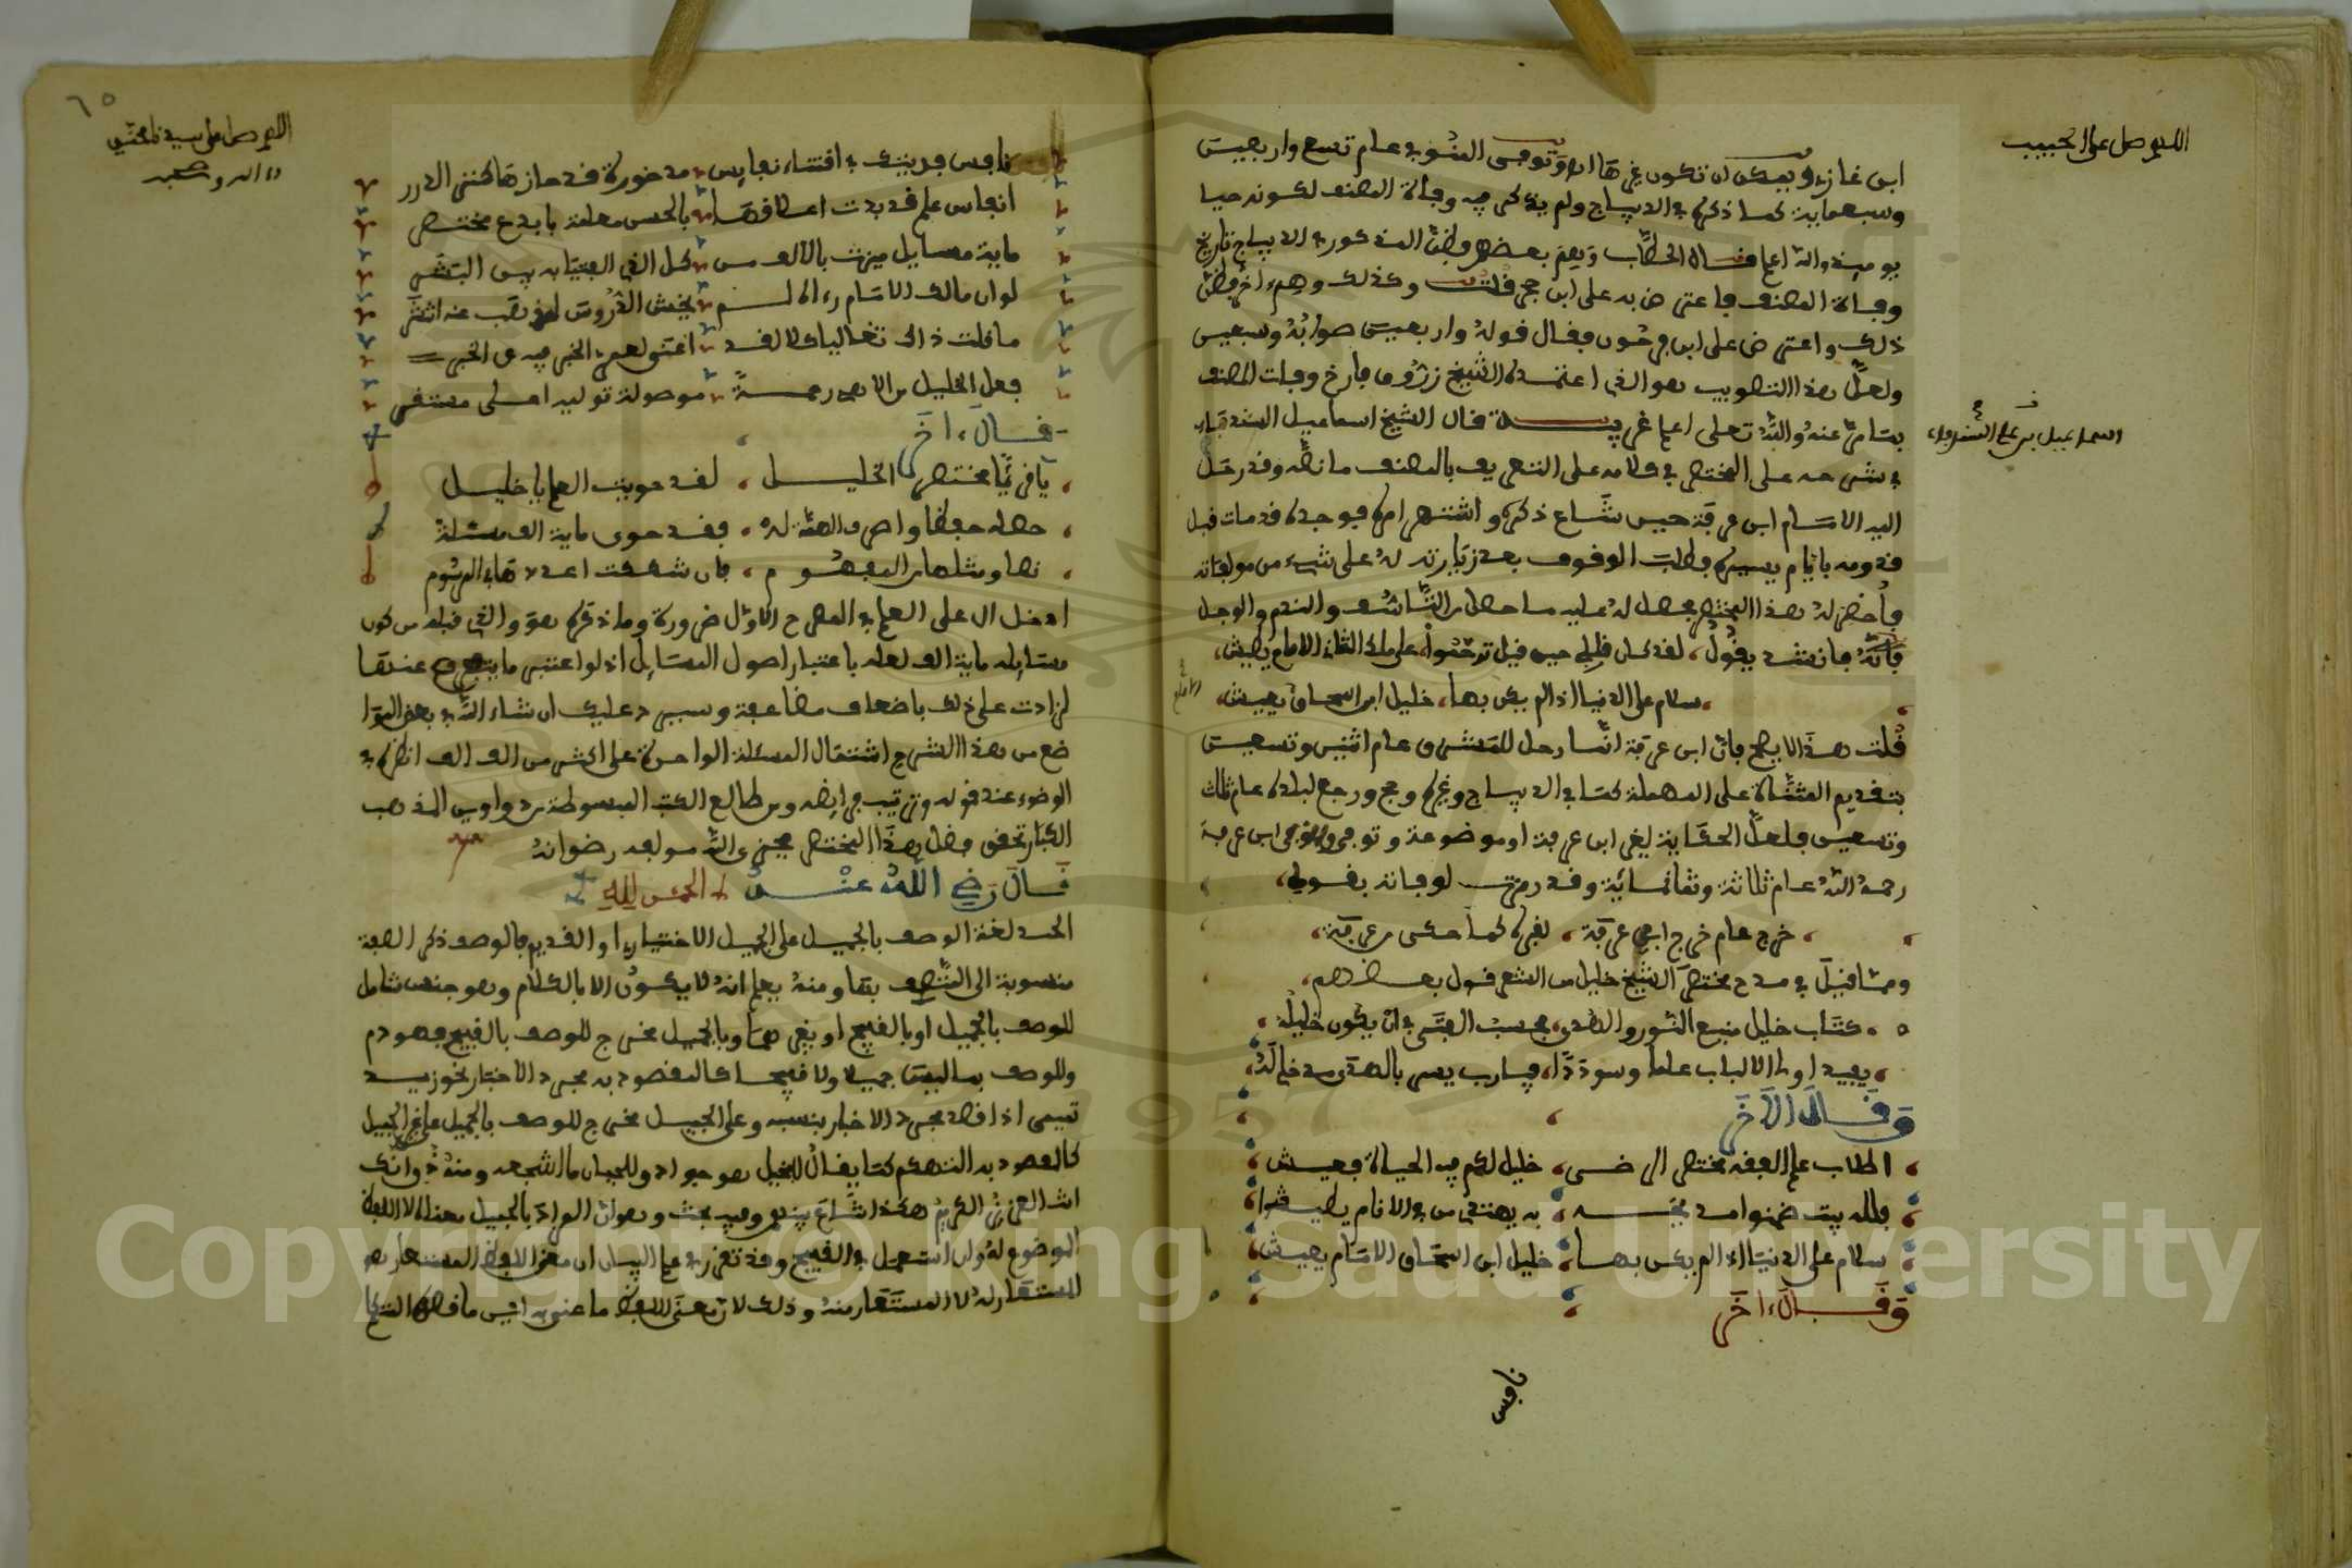 اللهم صل على الحبيب
ابن غازي ويمكن أن تكون غيرها اهـ وتوفي المنوفي عام تسع واربعين
وسبعماية كما ذكره في الديباج ولم يذكر فيه وفاة المصنف لكونه حيا
يومئذ والله اعلم قاله الحطاب وبعضهم وظن المذكور في الديباج تاريخ
وفاة المصنف فاعترض به على ابن حجر قلت وكذلك وهم اخر وظن
ذلك واعترض على ابن فرحون فقال قوله واربعين صوابه وسبعين
ولعل هذا التصويب هو الذي اعتمده الشيخ زروق فأرخ وفات المصنف
بما مر عنه والله تعلى اعلم غريبة قال الشيخ اسماعيل
اسماعيل بن علي
في شرحه على المختصر في كلامه على التعريف بالمصنف ما نصه وقد رحل
اليه الامام ابن عرفة حين شاع ذكره واشتهر امره فوجده قد مات قبل
قدومه بايام يسيرة وطلب الوقوف بعد زيارته له على شيء من مولفاته
فأحضر له هذا المختصر فحصل له عليه ما حصل من التأسف والندم والوجل
فانشد يقول، لقد كان قلبي حين قيل ترحموا، على ملك الثقات الامام يطيش،
سلام على الدنيا اذا لم يكن بها، خليل ابن اسحاق يعيش،
قلت هذا لا يصح فان ابن عرفة انما رحل للمشرق عام اثنين وتسعين
بتقديم المثناة على المهملة كما في الديباج وغيره وحج ورجع لبلده عام ثلاث
وتسعين فلعل الحكاية لغير ابن عرفة او موضوعة وتوفي ابن عرفة
رحمه الله عام ثلاثة وثمانمائة وقد رمزت لوفاته بقولي،
خرج عام خرج ابن عرفة، لقبره كما حكى من عرفه،
ومما قيل في مدح مختصر الشيخ خليل من الشعر قول بعضهم،
كتاب خليل منبع النور والهدى، فحسب الفتى في ان يكون خليله،
يفيد اولي الالباب علما وسوددا، فيارب يسر بالهدى مدخلا له،
وقال الآخر
اطلاب علم الفقه مختصر الرضى، خليل لكم فيه الحياة فعيشوا
سلام على الدنيا اذا لم يكن بها، خليل ابن اسحاق الامام يعيش،
وقال ءاخر
نافس
٦٥
اللهم صل على سيدنا محمد
نافس فديتك في اقتناء نفايس، مذخورة قد حازها كنز الدرر
انفاس علم قد بدت اعطافها، بالحسن معلنة بابدع مختصر
ماية مسايل ميزت بالالف من، كل الذي الفتيا به بين البشر
لو ان مالك الامام رءاه لم، يخش الدروس لمذهب عنه اشتهر
ما قلت ذاك تغاليا كلا لقد، اغنى لعمري الخبر فيه عن الخبر
فعلى الخليل من الاله رحمة، موصولة توليه اعلى مستقر
قال ءاخر
يا قارئا مختصر الخليل، لقد حويت العلم يا خليل
حصله حفظا واصرف الهمة له، فقد حوى ماية الف مسئلة
نصا ومثلها من المفهوم، فان شككت اعددها في المرسوم
ادخل ال على العلم في المصرع الاول ضرورة وما ذكره هو والذي قبله من كون
مسايله ماية الف لعله باعتبار اصول المسايل اذ لو اعتبر ما يتفرع عنها
لزادت على ذلك باضعاف مضاعفة وسيرد عليك ان شاء الله في بعض الموا
ضع من هذا الشرح اشتمال المسئلة الواحدة على اكثر من الف الف انظره في
الوضوء عند قوله وترتيب فرايضه ومن طالع الكتب المبسوطة من دواوين المذهب
الكبار تحقق فضل هذا المختصر فجزى الله مولفه رضوانه
قال رضي الله عنه الحمد لله
الحمد لغة الوصف بالجميل على الجميل الاختياري او القديم فالوصف ذكر الصفة
منسوبة الى المتصف بها ومنه يعلم انه لا يكون الا بالكلام وهو جنس شامل
للوصف بالجميل او بالقبيح او بغيرهما وبالجميل مخرج للوصف بالقبيح فهو ذم
وللوصف بما ليس جميلا ولا قبيحا كالمقصود به مجرد الاخبار نحو زيد
تميمي اذا قصد مجرد الاخبار بنسبه وعلى الجميل مخرج للوصف بالجميل على غير الجميل
كالمقصود به التهكم كما يقال للبخيل هو جواد وللجبان ما اشجعه ومنه ذق انك
انت العزيز الكريم هكذا شاع بينهم وفيه بحث وهو ان المراد بالجميل هذا الا اللفظ
الموضوع له ولو استعمل في القبيح وقد تقرر في علم البيان ان معنى اللفظ المستعار هو
المستعار له لا المستعار منه وذلك لان معنى اللفظ ما عني به اي ما قصده المتكلم
Copyright © King Saud University
1957